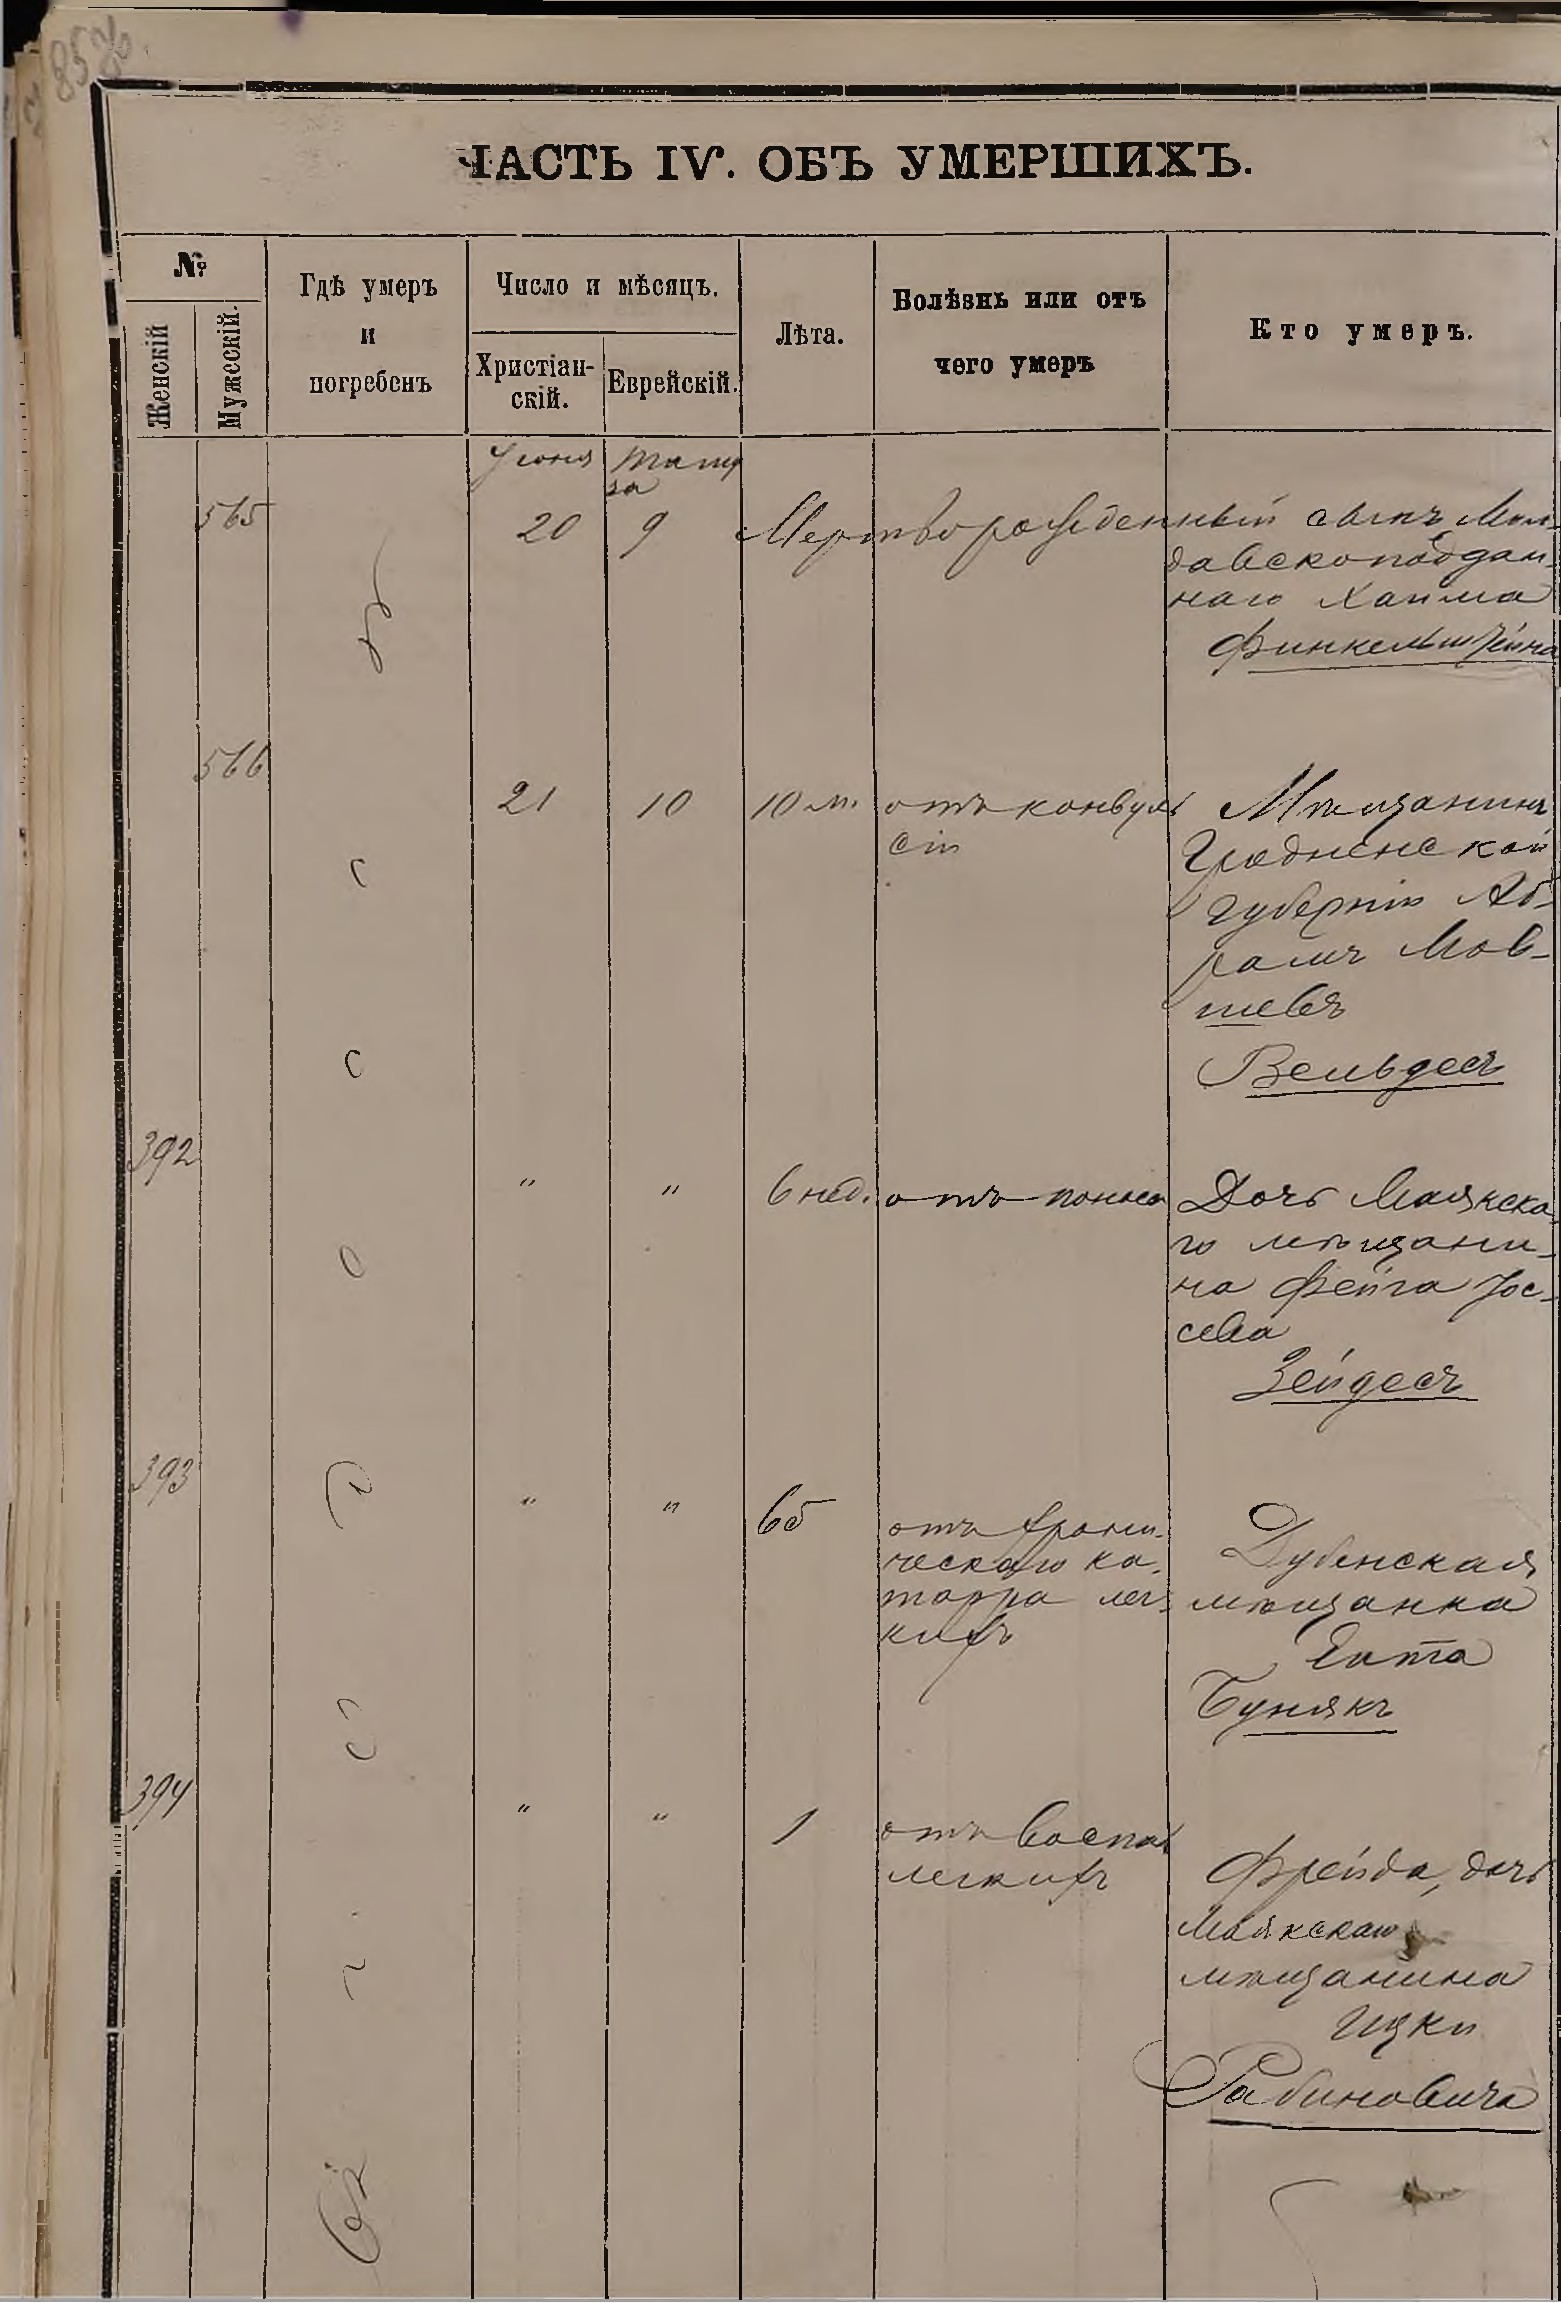 ЧАСТЬ IV. ОБЪ УМЕРШИХЪ.
№
Женскій
Мужескій.
Гдѣ умеръ
и
погребенъ
Число и мѣсяцъ.
Христіан-
скій.
Еврейскій.
Лѣта.
Болѣзнь или отъ
чего умеръ
Кто умеръ.
Іюня Таму
за
565 20 9 Мертворожденный сынъ Мол-
давскоподдан-
наго Хаима
Финкельштейна
566 21 10 10 м. отъ конвуль
сіи
Мѣщанинъ
Гродненской
губерніи Аб-
рамъ Мов-
шевъ
Вельдесъ
392 " " 6 нед. отъ поноса
Дочь Маякска-
го мѣщани-
на Фейга Іос-
сева
Зейдесъ
393 " " 65 отъ хрони-
ческаго ка-
тарра лег-
кихъ
Дубенская
мѣщанка
Ента
Бунякъ
394 " " 1 отъ воспал
легкихъ
Фрейда, дочь
Маякскаго
мѣщанина
Ицки
Рабиновича